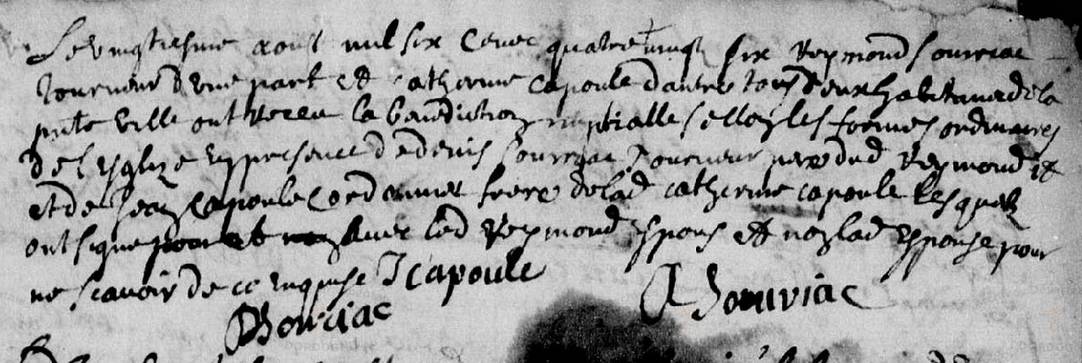 Le vingtiesme aoust mil six cens quatre vingt six Reymond Souriac
tourneur d'une part et catherine capoule dautre tous deux habitans de la
pnte ville ont Receu la benediction nuptialle sellon les formes ordinaires
de l'esglize en presence de denis Souriac tourneur pere dud Reymond et
et de Jean capoule Cordonnier frere de lad catherine capoule Lesquels
ont signe avec led Reymond espous et non lad espouse pour
ne scavoir de ce enquise J capoule
Souriac Souriac